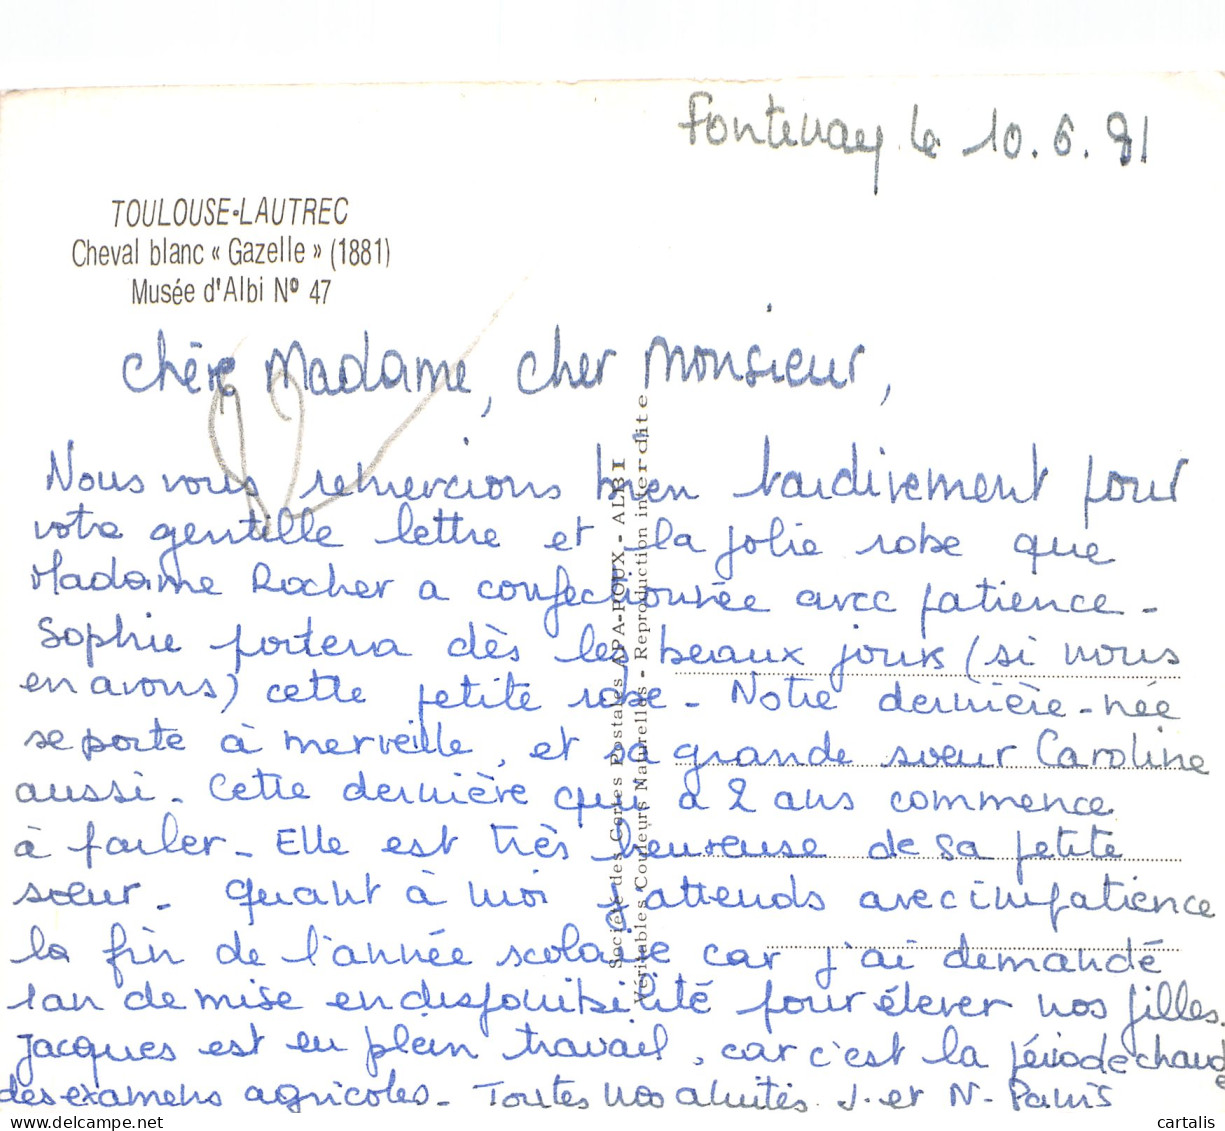 Fontenay le 10.6.81
TOULOUSE-LAUTREC
Cheval blanc « Gazelle » (1881)
Musée d'Albi Nº 47
Chère Madame, cher Monsieur,
Nous vous remercions bien tardivement pour
votre gentille lettre et la jolie robe que
Madame Rocher a confectionnée avec patience -
Sophie portera dès les beaux jours (si nous
en avons) cette petite robe - Notre dernière-née
se porte à merveille, et sa grande sœur Caroline
aussi - Cette dernière qui a 2 ans commence
à parler - Elle est très heureuse de sa petite
sœur - Quant à moi j'attends avec impatience
la fin de l'année scolaire car j'ai demandé
1 an de mise en disponibilité pour élever nos filles.
Jacques est en plein travail, car c'est la période chaude
des examens agricoles - Toutes nos amitiés J. et N.
Société des Cartes Postales APA-POUX - ALBI
Véritables Couleurs Naturelles - Reproduction interdite
cartalis
delcampe.net